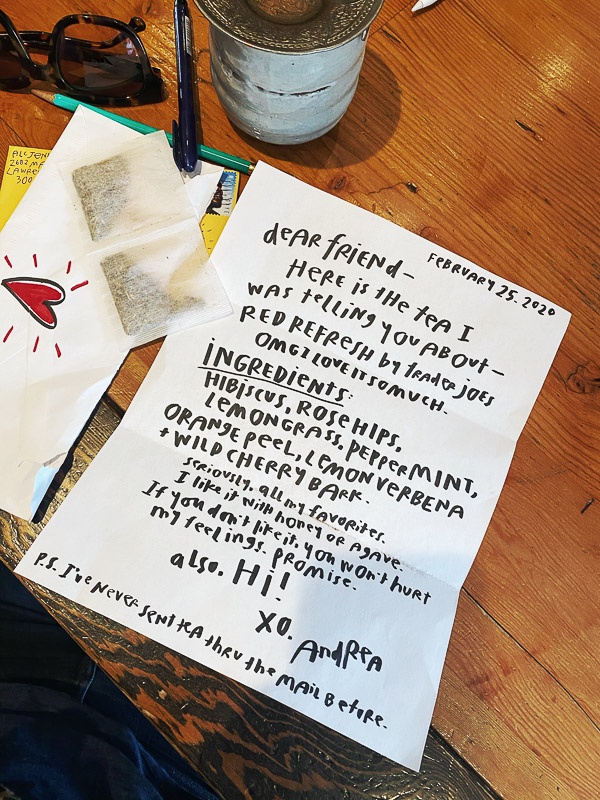 ALI JEN
2602 MA
LAWRE
300
FEBRUARY 25. 2020
dEAR fRiEND—
HERE is tHE tEA I
WAS tElliNG yOU AbOUt—
RED REFRESH by tRADER JOES
OMG I LOVE It SO MUCH.
iNGREDiENtS:
HiBiSCUS, ROSE HiPS,
LEMONGRASS, PEPPERMINT,
ORANGE PEEL, LEMON VERBENA
+ WILD CHERRY BARK.
SERiOUSly. all my fAVORitES.
I likE it WitH HONEy OR AgAVE.
If yOU dON't likE it, yOU WON't HURt
my fEEliNGS. PROMiSE.
alSO. Hi!
XO.
ANdREA
P.S. I'VE NEVER SENt tEA tHRU tHE MAIL BEfORE.